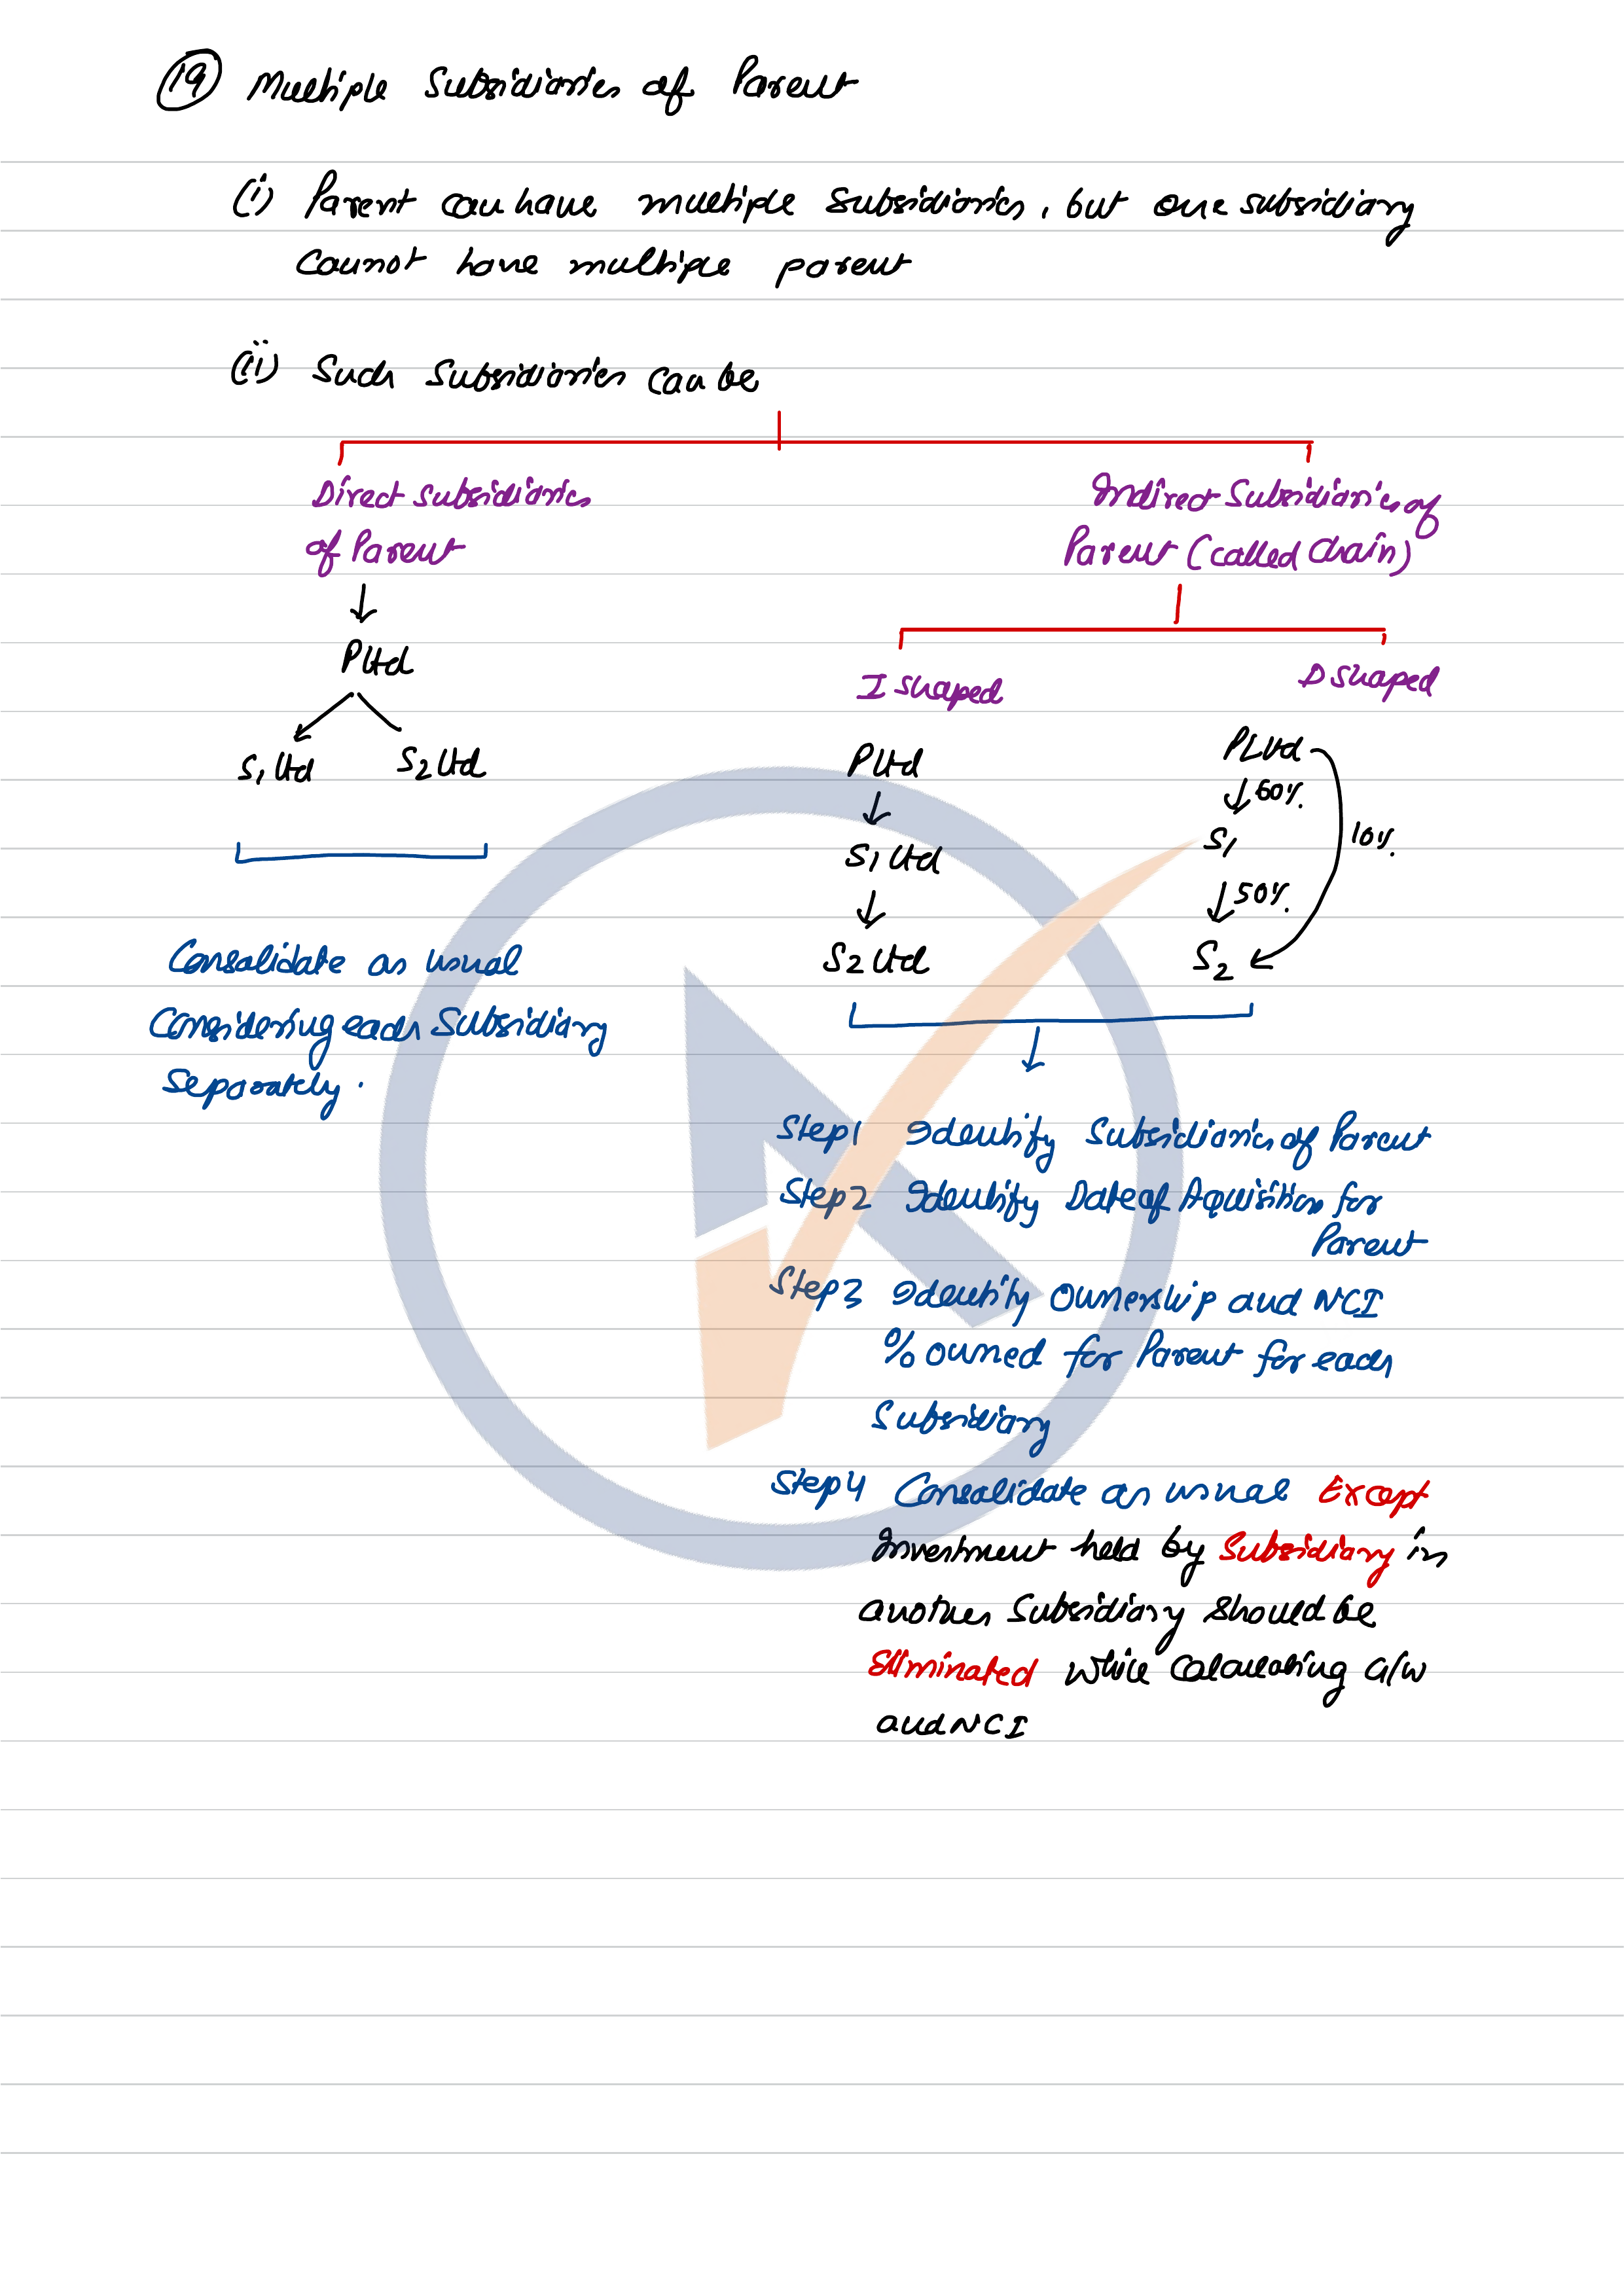 19 Multiple Subsidiaries of Parent
(i) Parent can have multiple subsidiaries, but one subsidiary
cannot have multiple parent
(ii) Such Subsidiaries can be
Direct Subsidiaries
of Parent
P Ltd
S1 Ltd S2 Ltd
Consolidate as usual
Considering each Subsidiary
Separately.
Indirect Subsidiaries of
Parent (called Chain)
I shaped
D shaped
P Ltd
S1 Ltd
S2 Ltd
P Ltd
60%
S1
10%
50%
S2
Step1 Identify Subsidiaries of Parent
Step2 Identify Date of Aquisition for
Parent
Step3 Identify Ownership and NCI
% owned for Parent for each
Subsidiary
Step4 Consolidate as usual Except
Investment held by Subsidiary in
another Subsidiary should be
Eliminated while Calculating G/W
and NCI